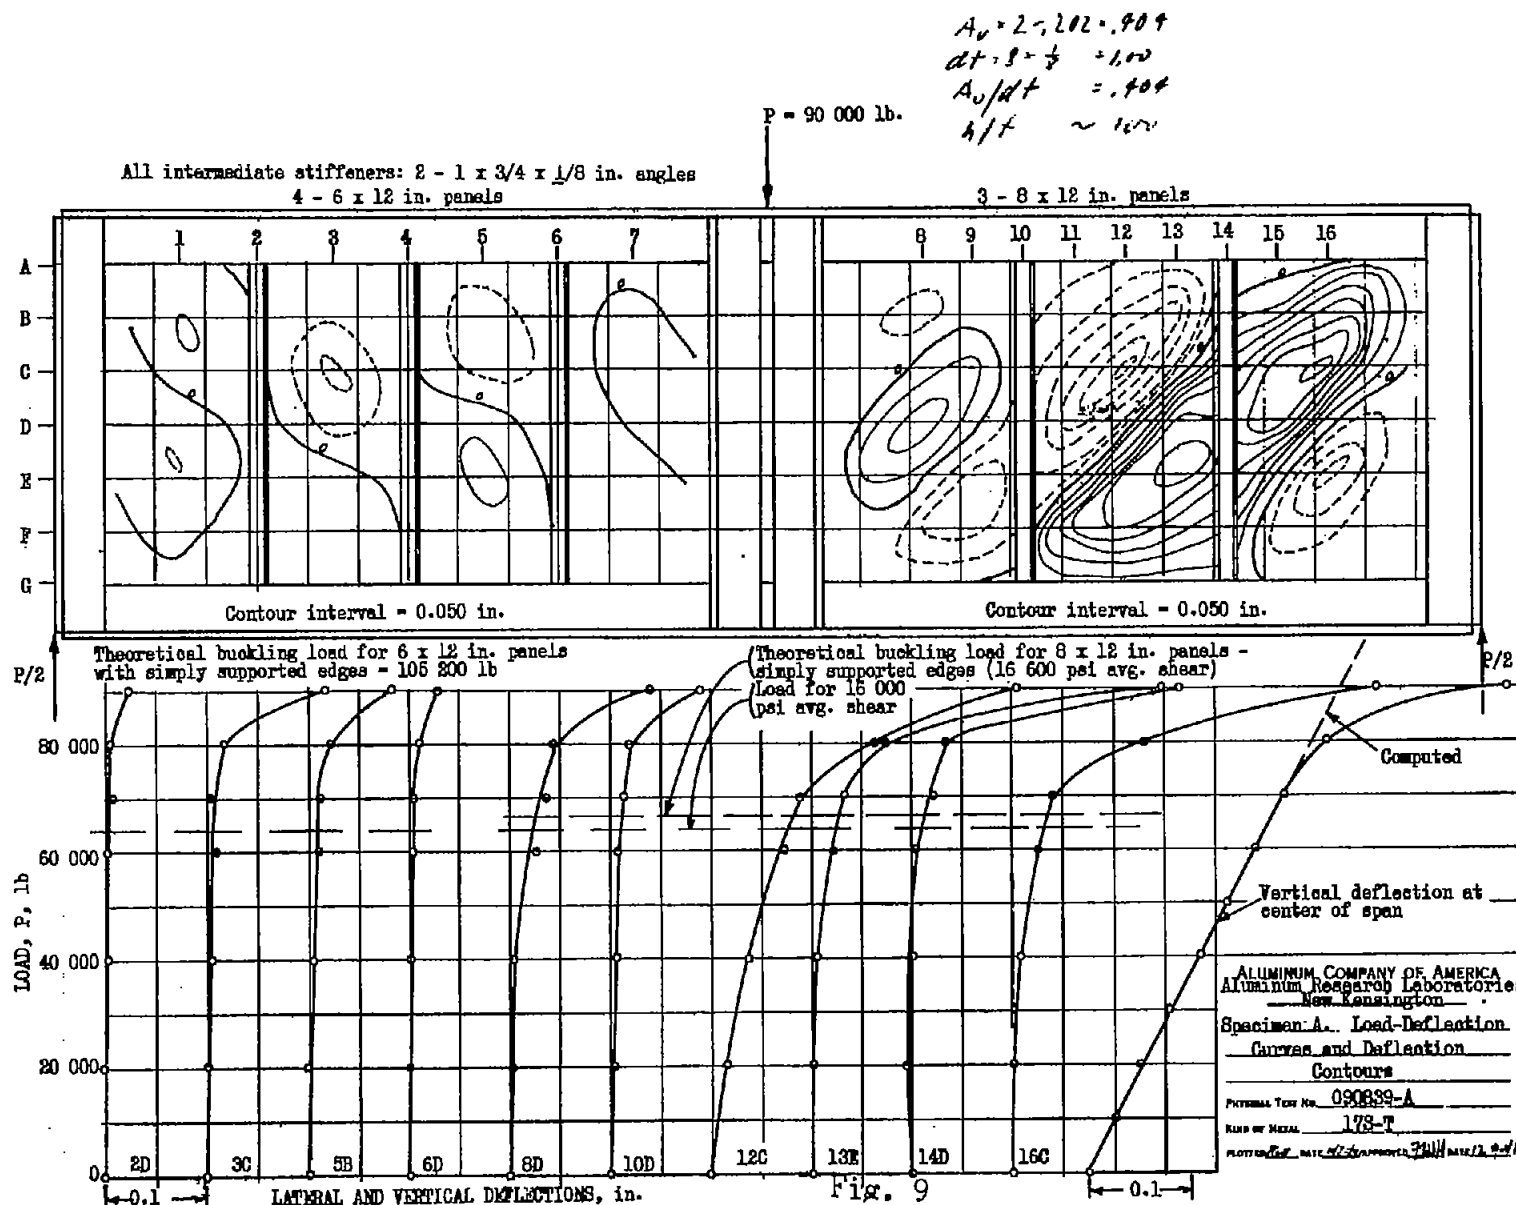 = .404
= 1.00
= .404
P = 90 000 lb.
All intermediate stiffeners: 2 - 1 x 3/4 x 1/8 in. angles
4 - 6 x 12 in. panels
3 - 8 x 12 in. panels
1 2 3 4 5 6 7
8 9 10 11 12 13 14 15 16
A
B
C
D
E
F
G
Contour interval = 0.050 in.
Contour interval = 0.050 in.
P/2
Theoretical buckling load for 6 x 12 in. panels
with simply supported edges = 105 200 lb
(Theoretical buckling load for 8 x 12 in. panels -
simply supported edges (16 600 psi avg. shear)
(Load for 16 000
psi avg. shear
P/2
Computed
Vertical deflection at
center of span
LOAD, P, lb
80 000
60 000
40 000
20 000
0
2D 3C 5B 6D 8D 10D 12C 13E 14D 16C
0.1
LATERAL AND VERTICAL DEFLECTIONS, in.
Fig. 9
0.1
ALUMINUM COMPANY OF AMERICA
Aluminum Research Laboratories
New Kensington
Specimen A. Load-Deflection
Curves and Deflection
Contours
PHYSICAL TEST No. 090839-A
KIND OF METAL 17S-T
PLOTTED DATE APPROVED DATE